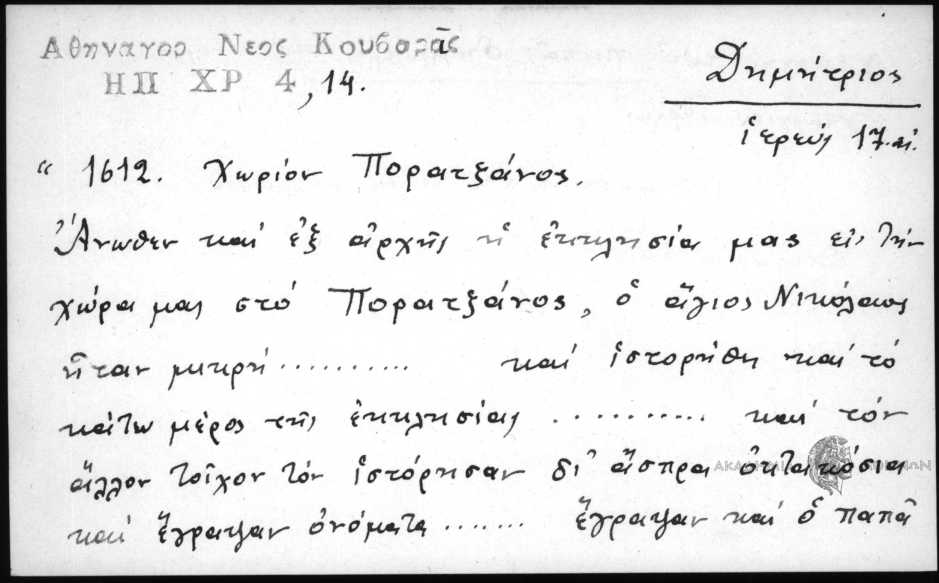 Αθηναγορ Νεος Κουβαρᾶς
ΗΠ ΧΡ 4, 14.
Δημήτριος
ἱερεύς 17. αἰ.
“ 1612. Χωρίον Πορατζάνος.
Ἄνωθεν καί ἐξ ἀρχῆς ἡ ἐκκλησία μας εἰς τήν
χώρα μας στό Πορατζάνος, ὁ ἅγιος Νικόλαος
ἦταν μικρή .......... καί ἱστορήθη καί τό
κάτω μέρος τῆς ἐκκλησίας .......... καί τόν
ἄλλον τοῖχον τόν ἱστόρησαν δι' ἄσπρα ὀκτακόσια
καί ἔγραψαν ὀνόματα ....... ἔγραψαν καί ὁ παπᾶ
ΑΚΑΔΗΜΙΑ ΑΘΗΝΩΝ